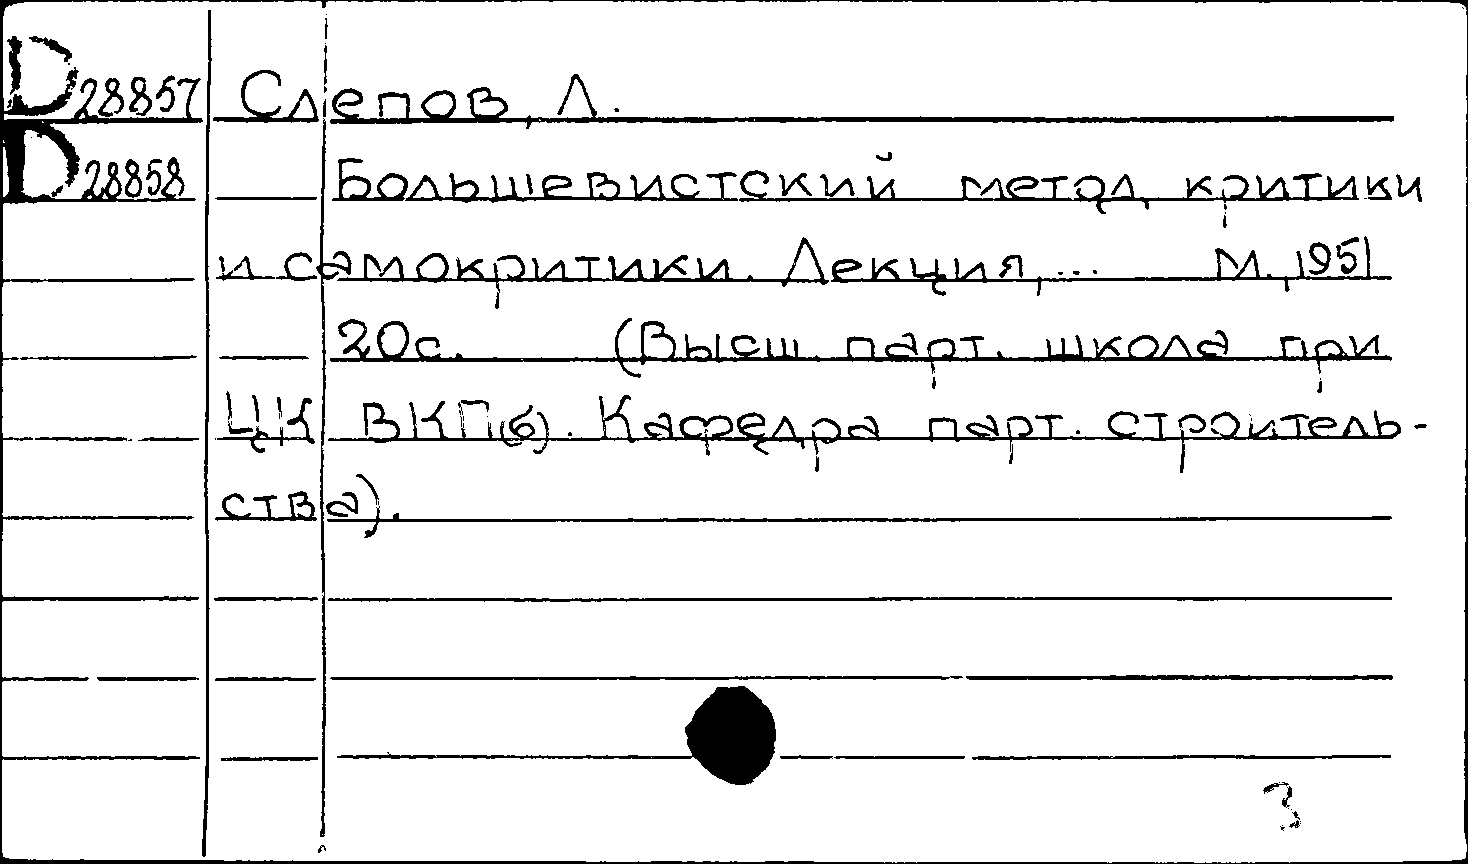 D 28857 Слепов, Л.
D 28858 Большевистский метод критики
и самокритики. Лекция,... М., 1951
20с. (Высш. парт. школа при
ЦК ВКП(б). Кафедра парт. строитель-
ства).
3